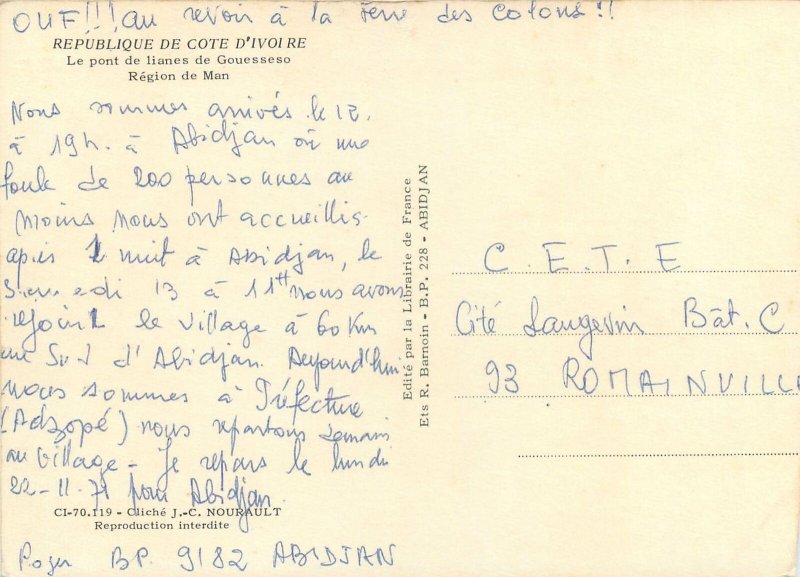 OUF!!! au revoir à la terre des colons!!
REPUBLIQUE DE COTE D'IVOIRE
Le pont de lianes de Gouesseso
Région de Man
Nous sommes arrivés le 12.
à 19h. à Abidjan où une
foule de 200 personnes au
moins nous ont accueillis.
après 1 nuit à Abidjan, le
Samedi 13 à 11H nous avons
rejoint le village à 60 Km
au Sud d'Abidjan. Aujourd'hui
nous sommes à Préfecture
(Adzopé) nous repartons demain
au Village - Je repars le lundi
22-11-71 pour Abidjan.
CI-70.119 - Cliché J.-C. NOURAULT
Reproduction interdite
Roger BP. 9182 ABIDJAN
Edité par la Librairie de France
Ets R. Barnoin - B.P. 228 - ABIDJAN
C. E. T. E
Cité Langevin Bât. C
93 ROMAINVILLE